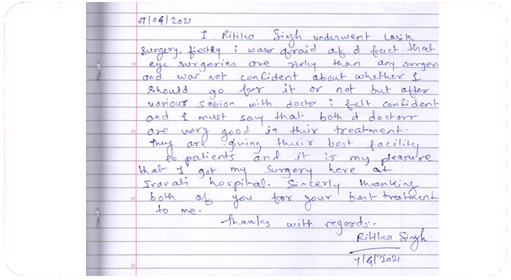 7/04/2021
I, Ritika Singh underwent Lasik
surgery, firstly i was afraid of d fact that
eye surgeries are risky than any surgery
and was not confident about whether I
should go for it or not but after
various session with doctor i felt confident
and i must say that both d doctors
are very good in their treatment.
They are giving their best facility
to patients and it is my pleasure
that I got my surgery here at
Iravati hospital. Sincerly thanking
both of you for your best treatment
to me.
Thanks with regards.
Ritika Singh
7/4/2021